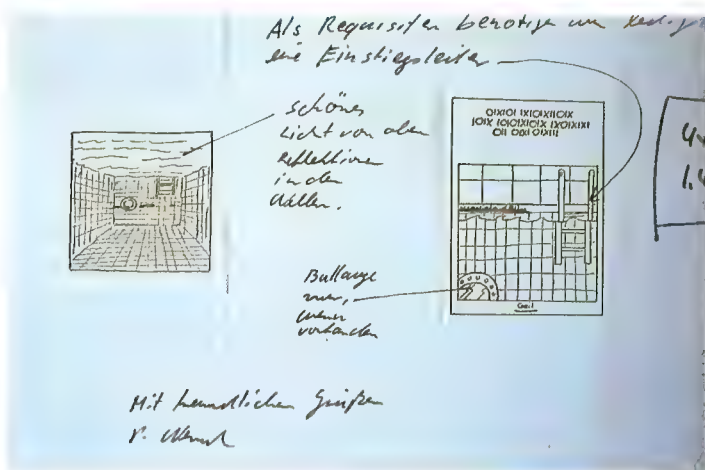 Als Requisiten benötigen wir
eine Einstiegsleiter
schönes
Licht von oben
Reflektionen
in den
Wellen.
OIXIOI IXIOIXIIOIX
IOIX IOIOIXIOIX IXOIXIXI
OII OIXI OIXIII
Bullauge
nur,
wenn
vorhanden
Gail
Mit freundlichen Grüßen